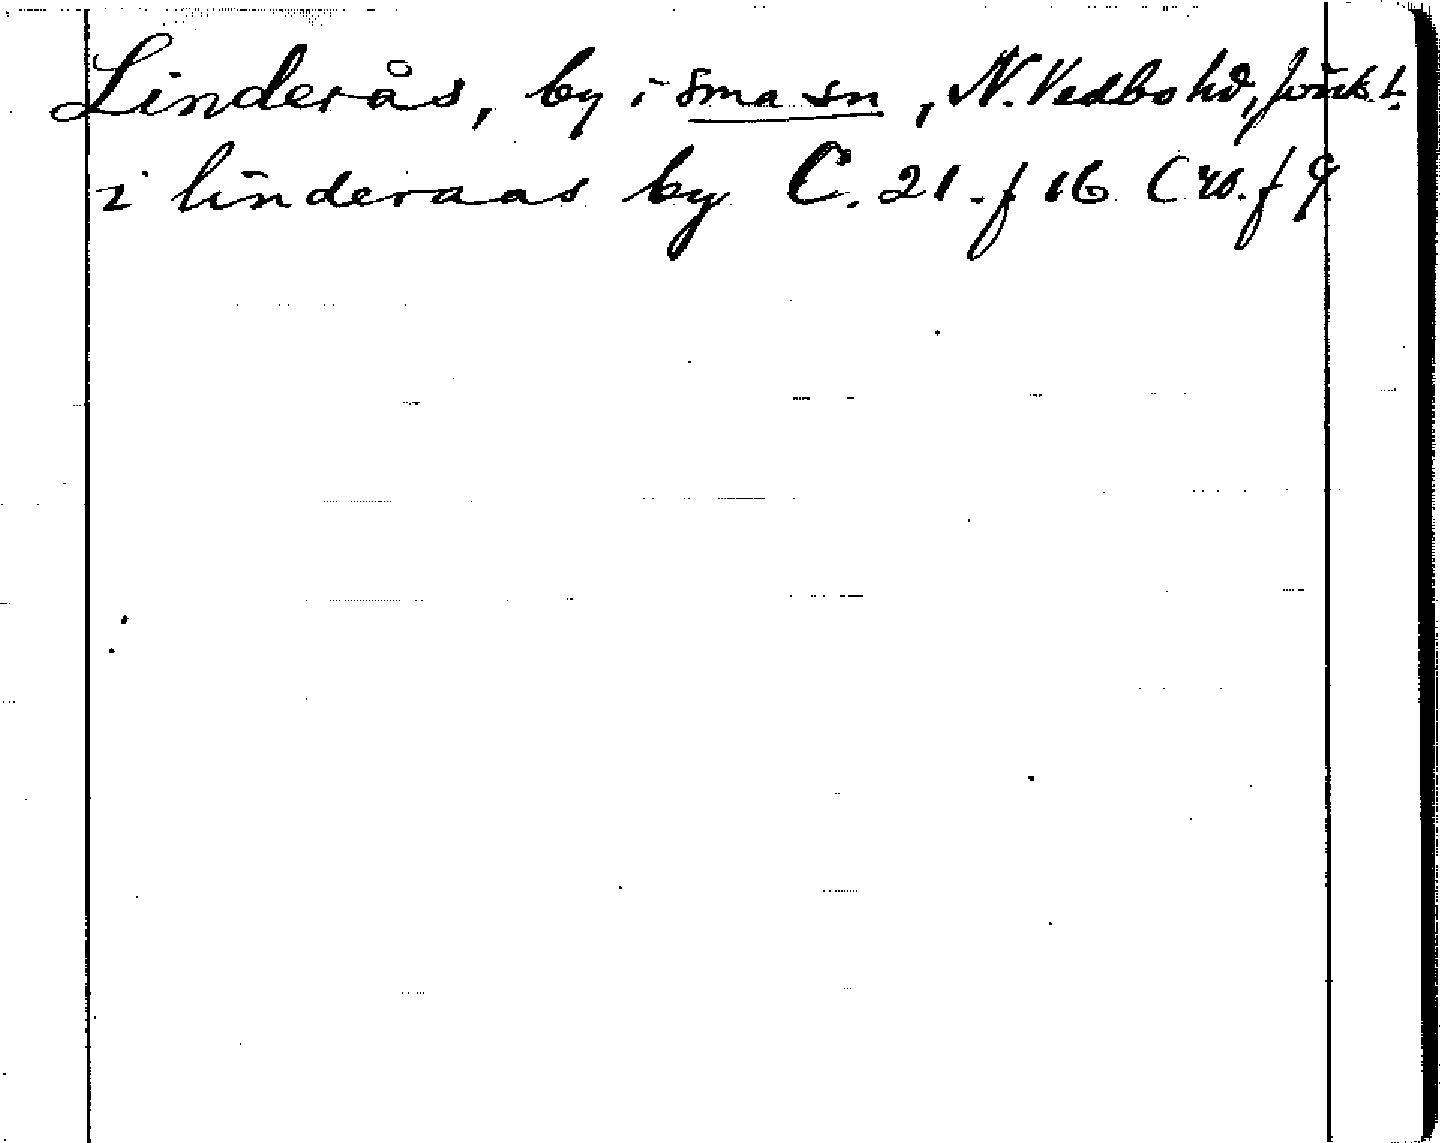 Linderås, by i sma sn, N. Vedbo hd, Jönk. l.
i linderaas by C. 21. f 16 ( ro. f 9